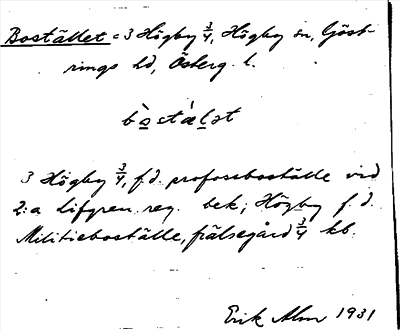 Bostället = 3 Högby 3/4, Högby sn, Göst-
rings hd, Österg. l.
bòstàlət
3 Högby 3/4, f.d. profosboställe vid
2:a Lifgren. reg. bek; Högby f.d.
Militieboställe, frälsegård 3/4 kb.
Erik Alm 1931